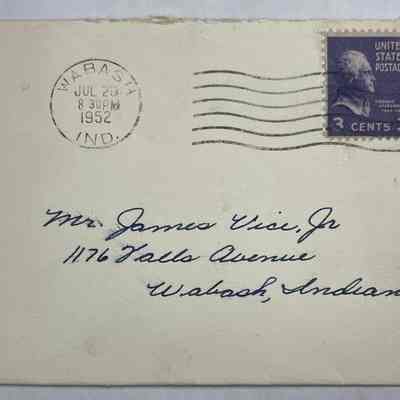 WABASH
JUL 25
8 30PM
1952
IND.
UNITED
STATES
POSTAGE
3 CENTS 3
Mr. James Vice, Jr
1176 Falls Avenue
Wabash, Indian